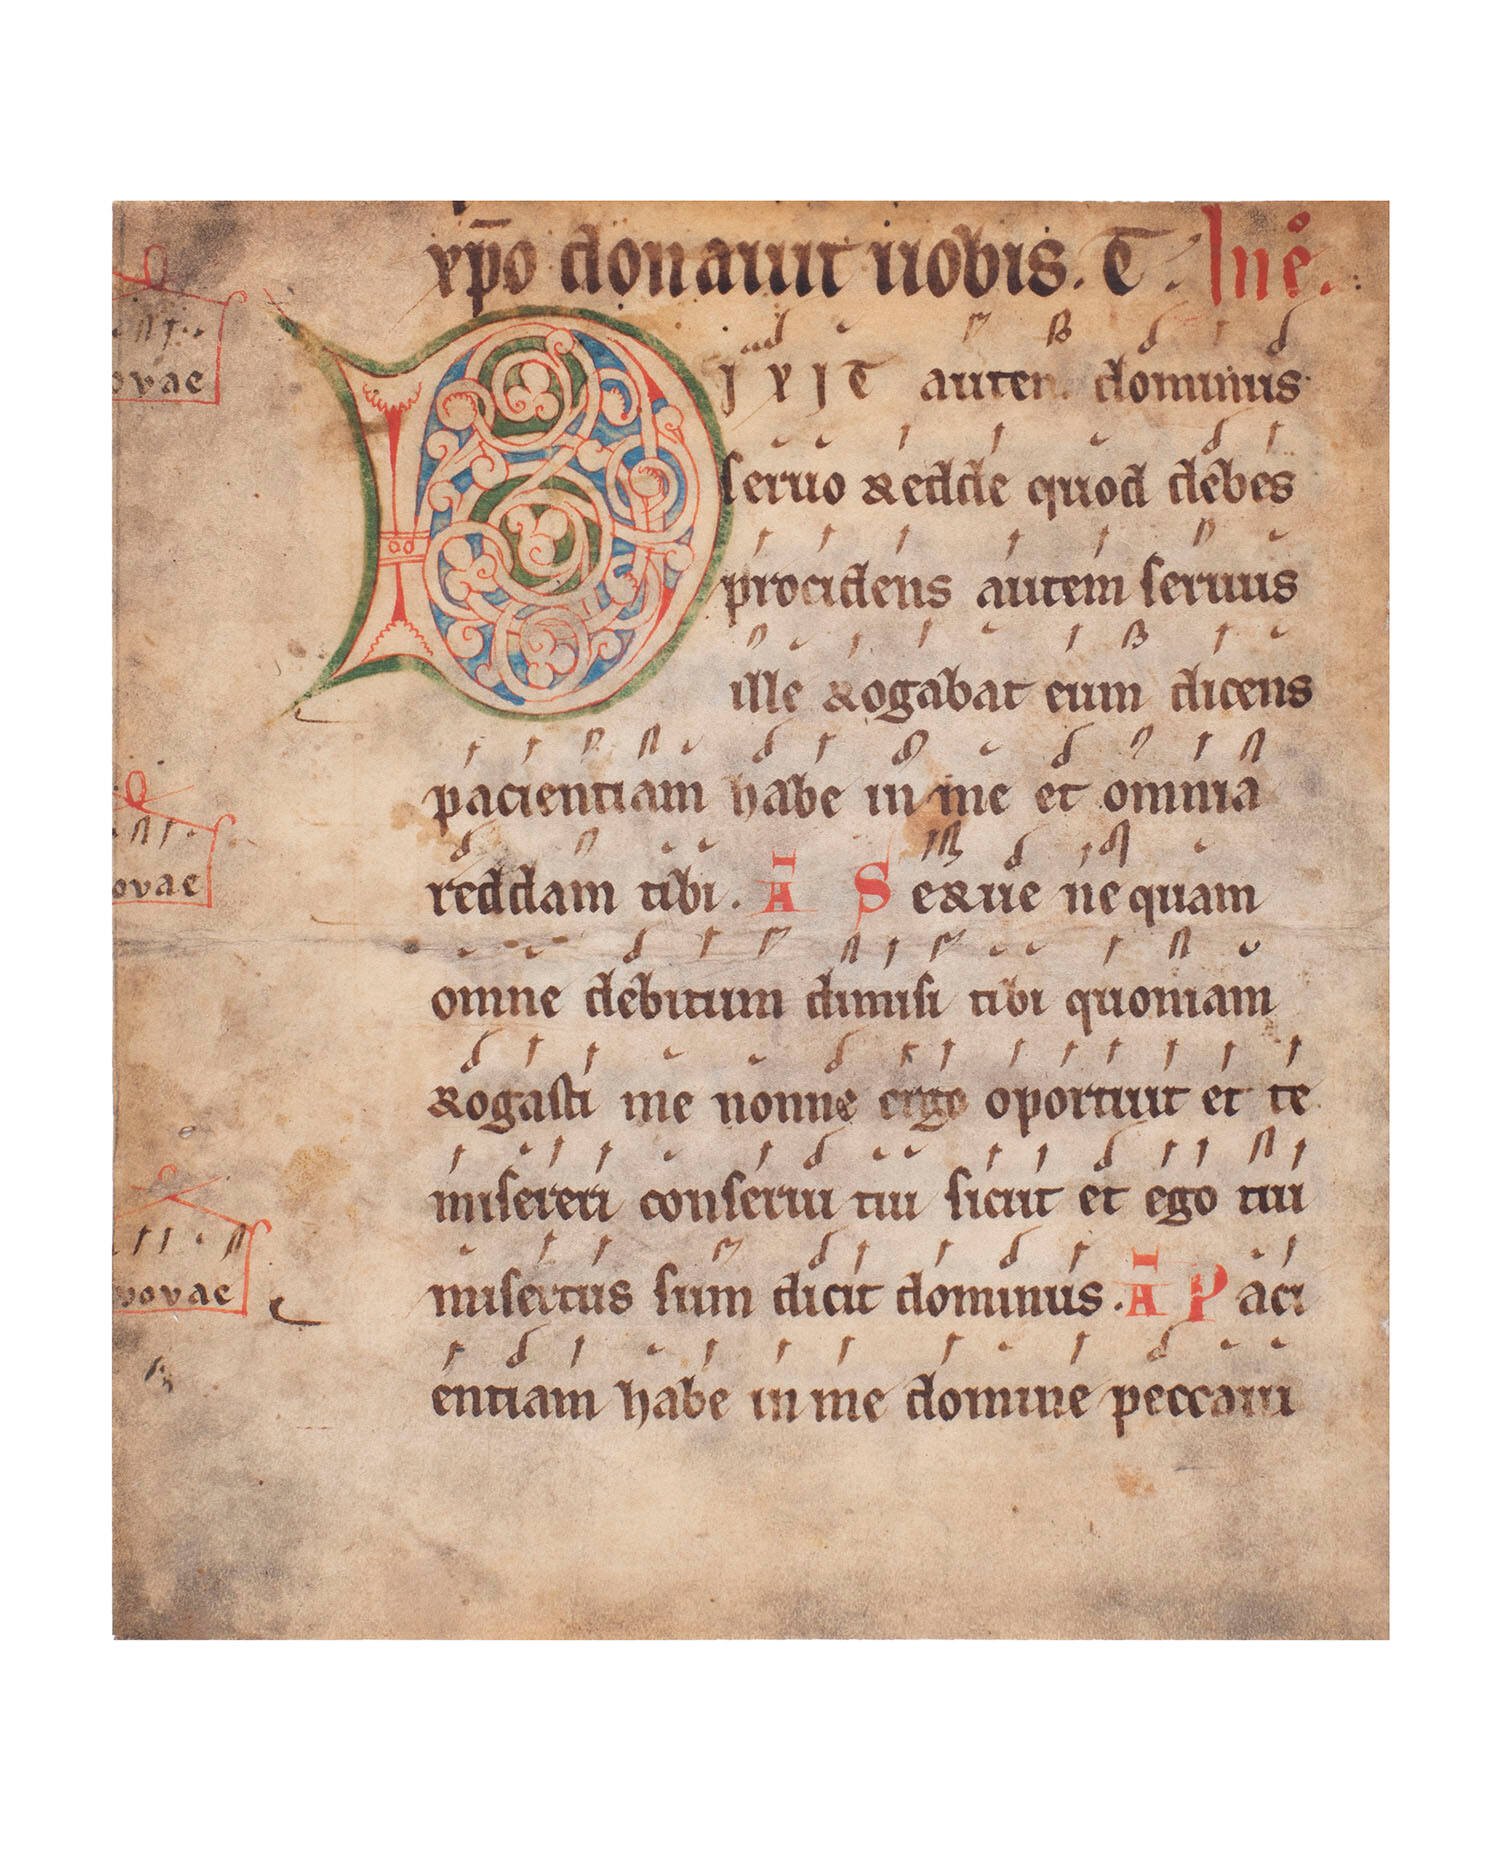 xp̄o donauit uobis. T. Ine°.
DIXIT autem dominus
seruo redde quod debes
procidens autem seruus
ille rogabat eum dicens
pacientiam habe in me et omnia
reddam tibi. A Serue nequam
omne debitum dimisi tibi quoniam
rogasti me nonne ergo oportuit et te
misereri conserui tui sicut et ego tui
misertus sum dicit dominus. A Paci
entiam habe in me domine peccaui
ovae
ovae
vovae